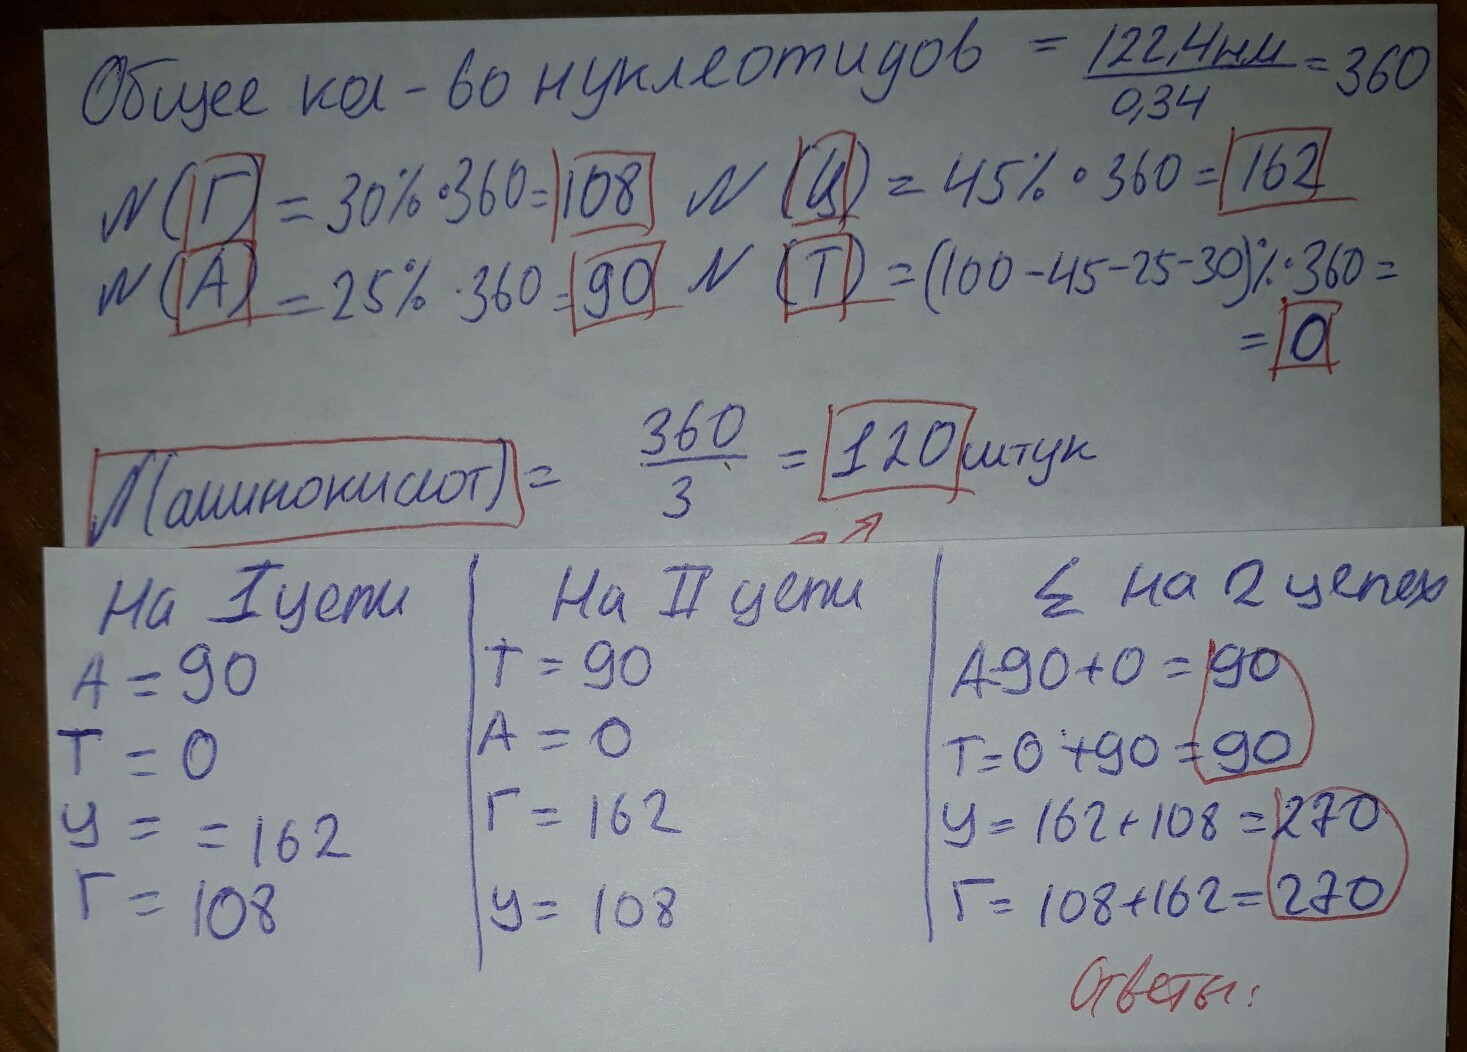 Общее кол-во нуклеотидов = 122,4нм / 0,34 = 360
N(Г) = 30%·360=108 N(Ц) = 45%·360=162
N(А) = 25%·360=90 N(Т) = (100-45-25-30)%·360=
=0
N(аминокислот) = 360 / 3 = 120 штук
На I цепи
А = 90
Т = 0
Ц = = 162
Г = 108
На II цепи
Т = 90
А = 0
Г = 162
Ц = 108
Σ на 2 цепех
А-90+0=90
Т=0+90=90
Ц=162+108=270
Г=108+162=270
Ответы: